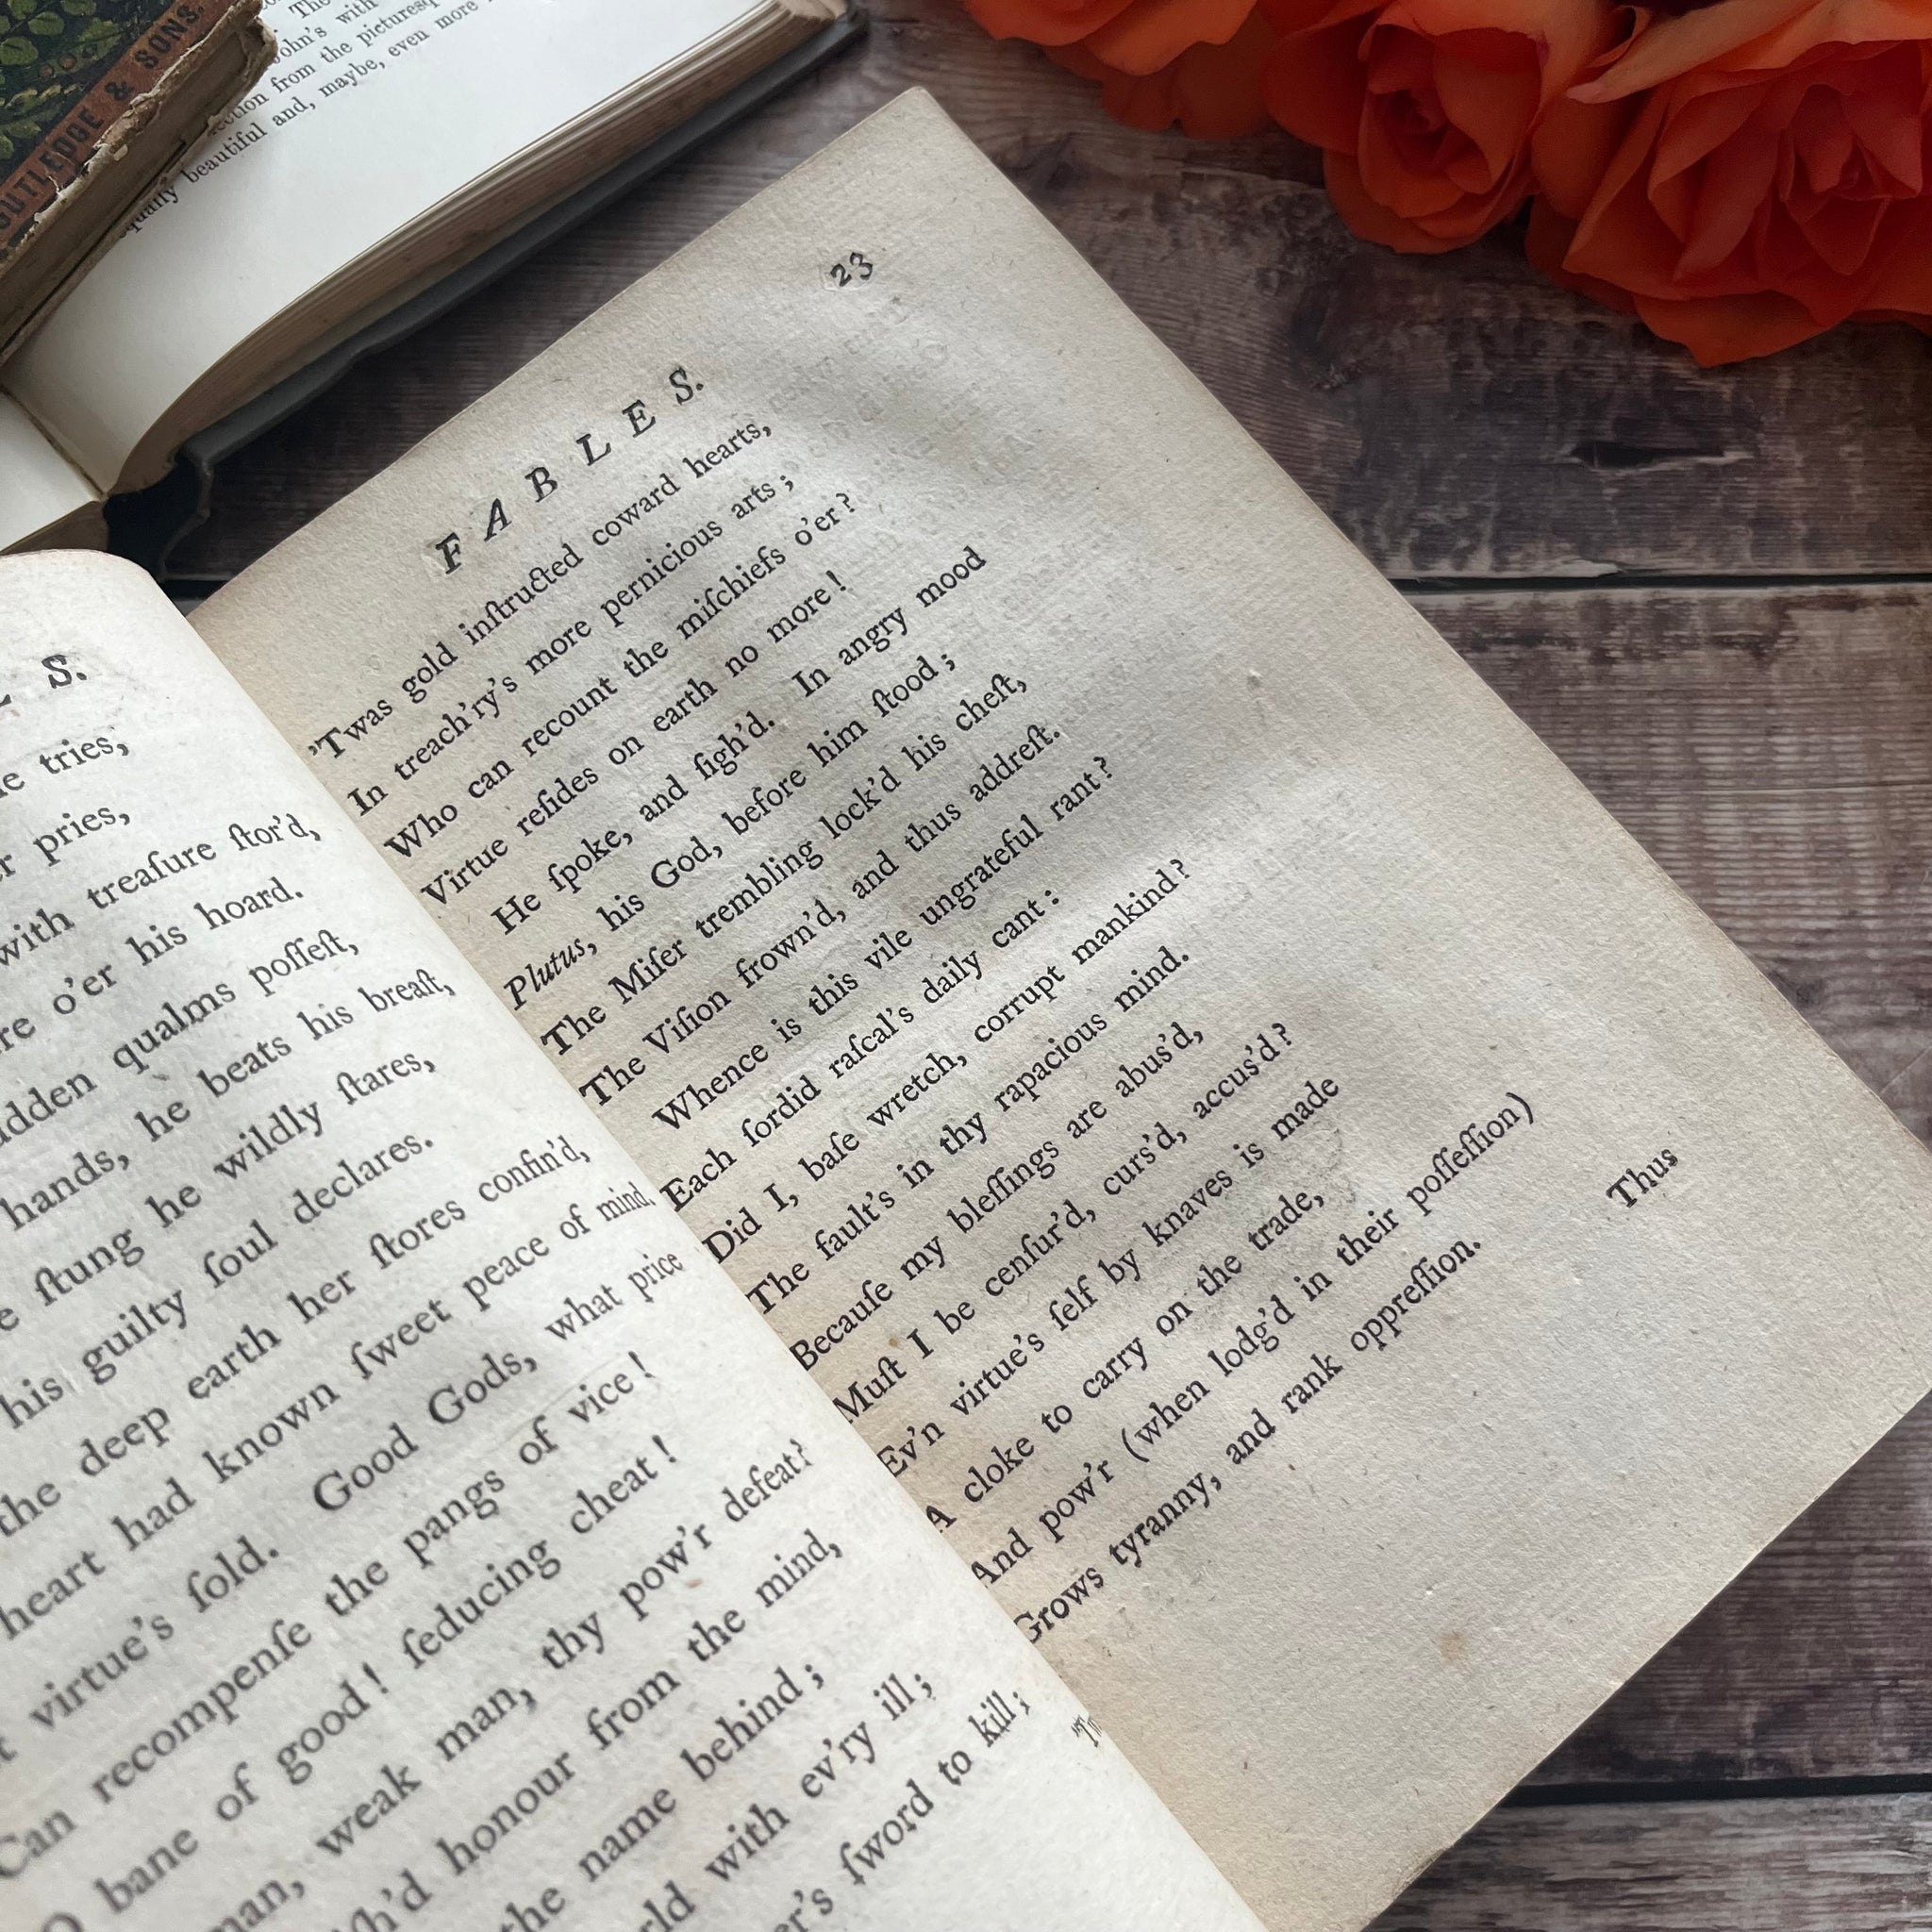 The
John's with
ction from the picturesq
qually beautiful and, maybe, even more
OUTLEDGE & SONS.
L S.
e tries,
r pries,
with treaſure ſtor'd,
re o'er his hoard.
dden qualms poſſeſt,
hands, he beats his breaſt,
e ſtung he wildly ſtares,
his guilty ſoul declares.
the deep earth her ſtores confin'd,
heart had known ſweet peace of mind,
t virtue's ſold. Good Gods, what price
Can recompenſe the pangs of vice!
O bane of good! ſeducing cheat!
man, weak man, thy pow'r defeat?
h'd honour from the mind,
the name behind;
rld with ev'ry ill;
er's ſword to kill;
23
FABLES.
'Twas gold inſtructed coward hearts,
In treach'ry's more pernicious arts;
Who can recount the miſchiefs o'er?
Virtue reſides on earth no more!
He ſpoke, and ſigh'd. In angry mood
Plutus, his God, before him ſtood;
The Miſer trembling lock'd his cheſt,
The Viſion frown'd, and thus addreſt.
Whence is this vile ungrateful rant?
Each ſordid raſcal's daily cant:
Did I, baſe wretch, corrupt mankind?
The fault's in thy rapacious mind.
Becauſe my bleſſings are abus'd,
Muſt I be cenſur'd, curs'd, accus'd?
Ev'n virtue's ſelf by knaves is made
A cloke to carry on the trade,
And pow'r (when lodg'd in their poſſeſſion)
Grows tyranny, and rank oppreſſion.
Thus